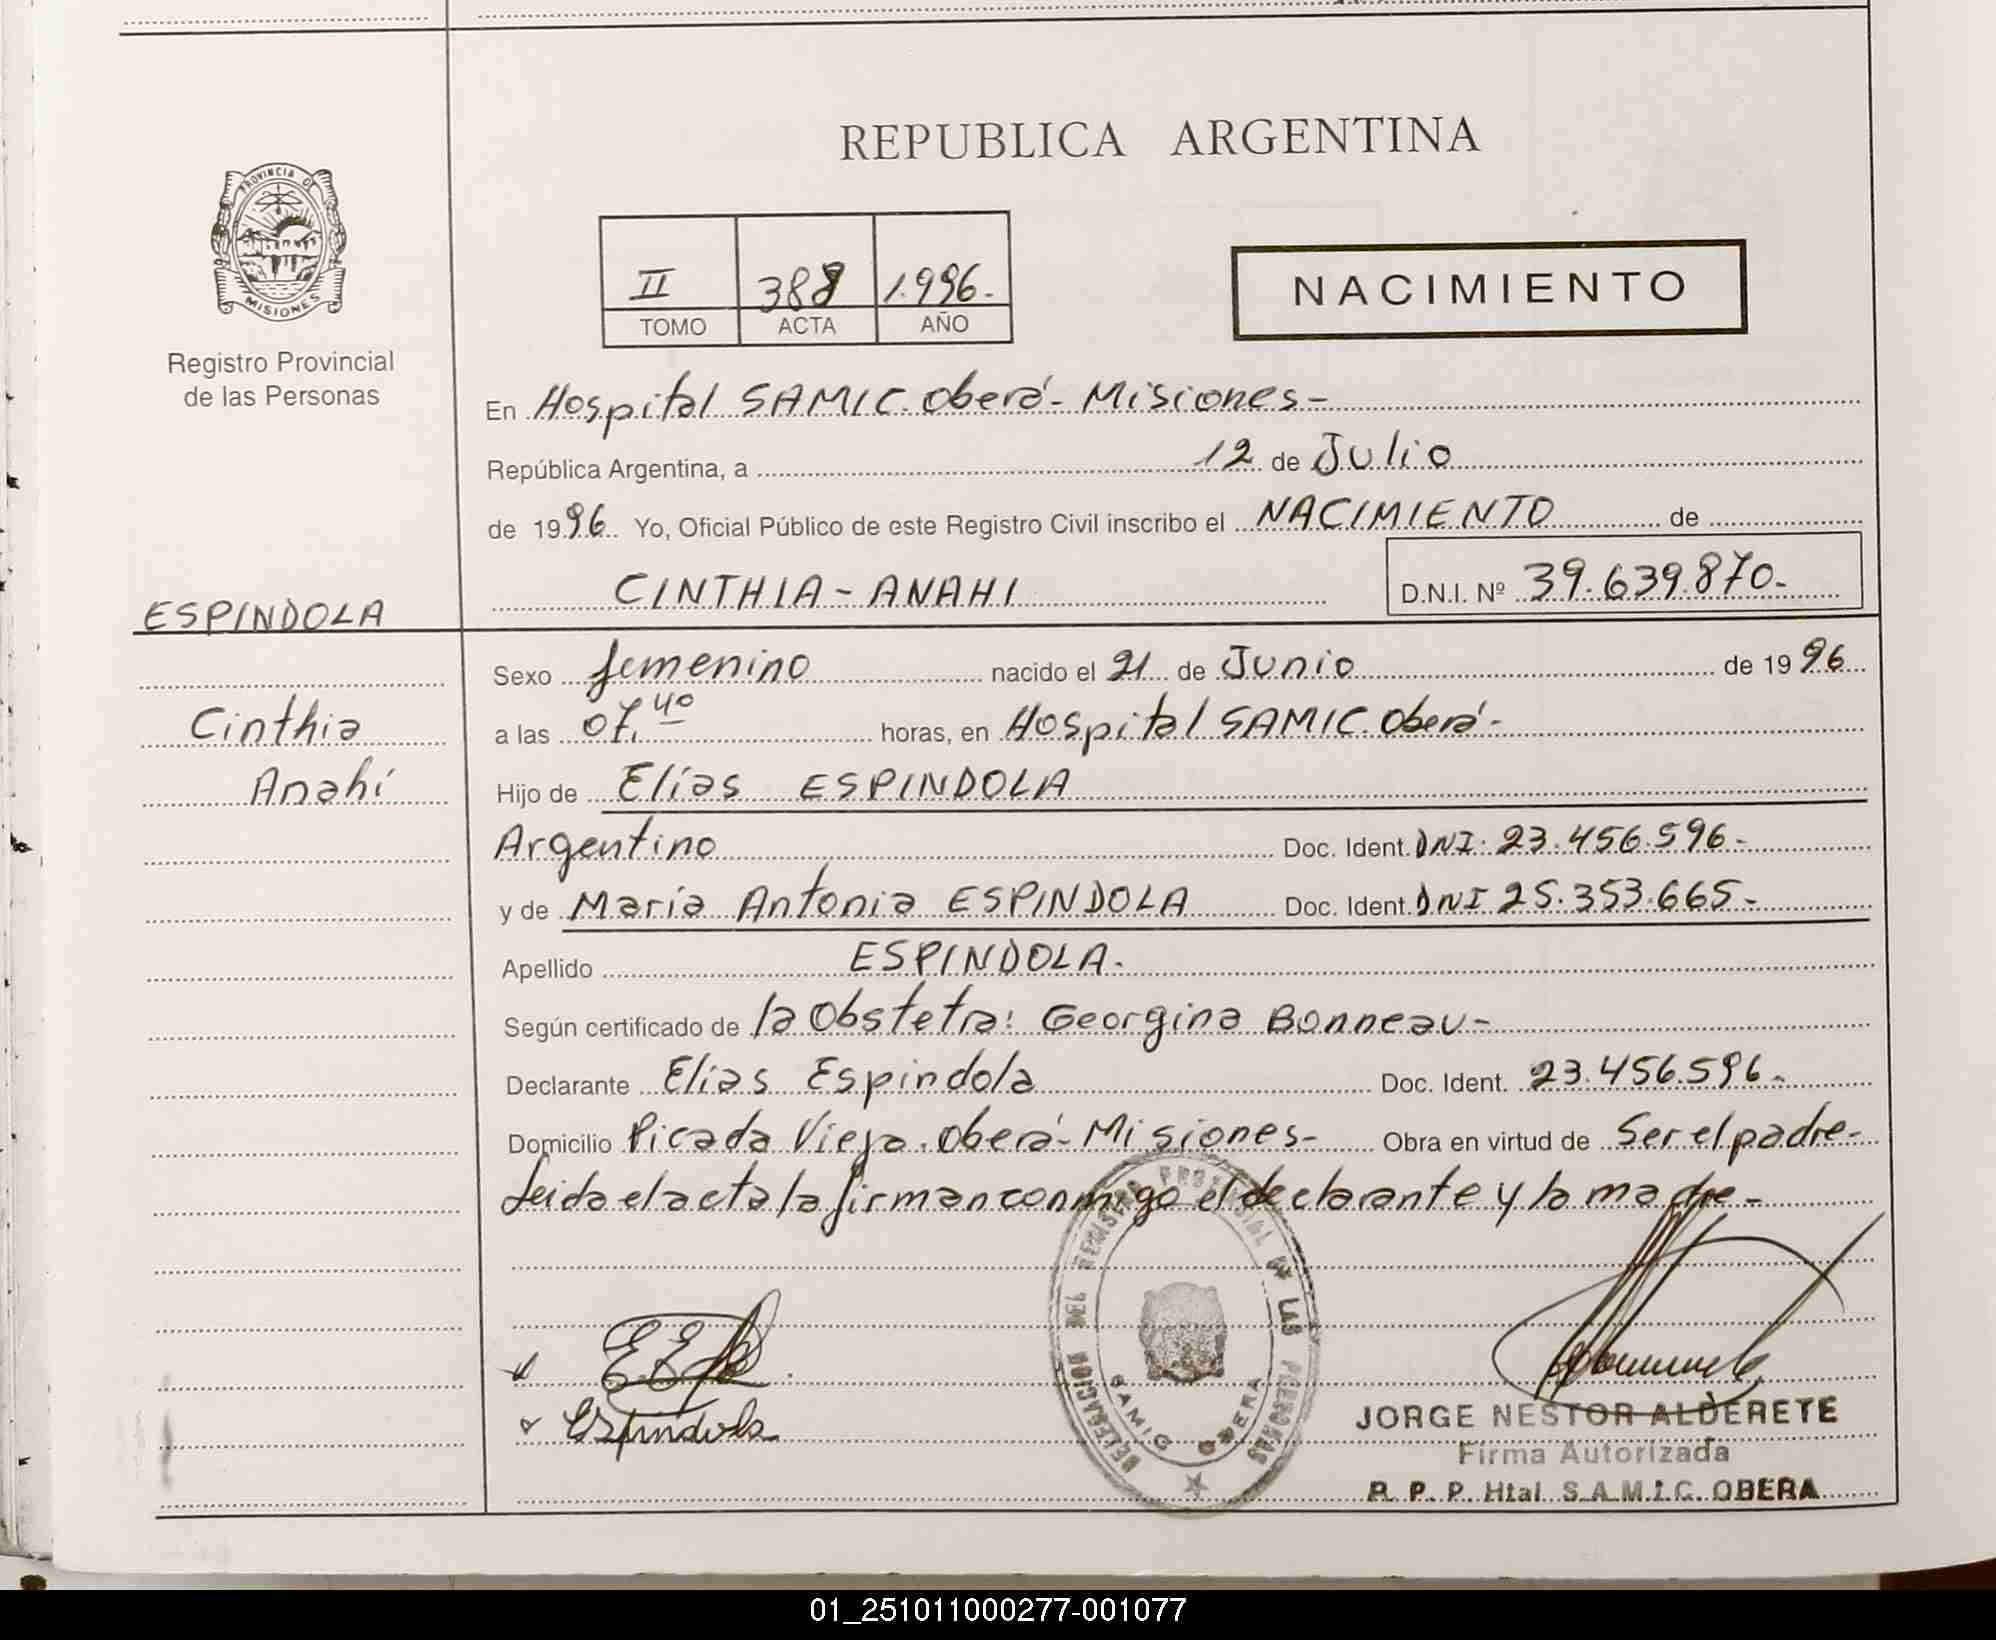 REPUBLICA ARGENTINA
PROVINCIA DE
MISIONES
Registro Provincial
de las Personas
II 388 1.996.-
TOMO ACTA AÑO
NACIMIENTO
En Hospital SAMIC. Oberá- Misiones-
República Argentina, a 12 de Julio
de 1996 Yo, Oficial Público de este Registro Civil inscribo el NACIMIENTO de
CINTHIA-ANAHI D.N.I. Nº 39.639.870.-
ESPINDOLA
Cinthia
Anahí
Sexo femenino nacido el 21 de Junio de 1996
a las 07,40 horas, en Hospital SAMIC. Oberá-
Hijo de Elías ESPINDOLA
Argentino Doc. Ident. DNI. 23.456.596.-
y de María Antonia ESPINDOLA Doc. Ident. DNI 25.353.665.-
Apellido ESPINDOLA.
Según certificado de la Obstetra: Georgina Bonneau-
Declarante Elías Espindola Doc. Ident. 23.456.596.
Domicilio Picada Vieja. Oberá- Misiones- Obra en virtud de Ser el padre-
Leida el acta la firman conmigo el declarante y la madre-
Espindola
DELEGACION DEL REGISTRO PROVINCIAL DE LAS PERSONAS
SAMIC OBERA
JORGE NESTOR ALDERETE
Firma Autorizada
R. P. P. Htal. S.A.M.I.C. OBERA
01_251011000277-001077